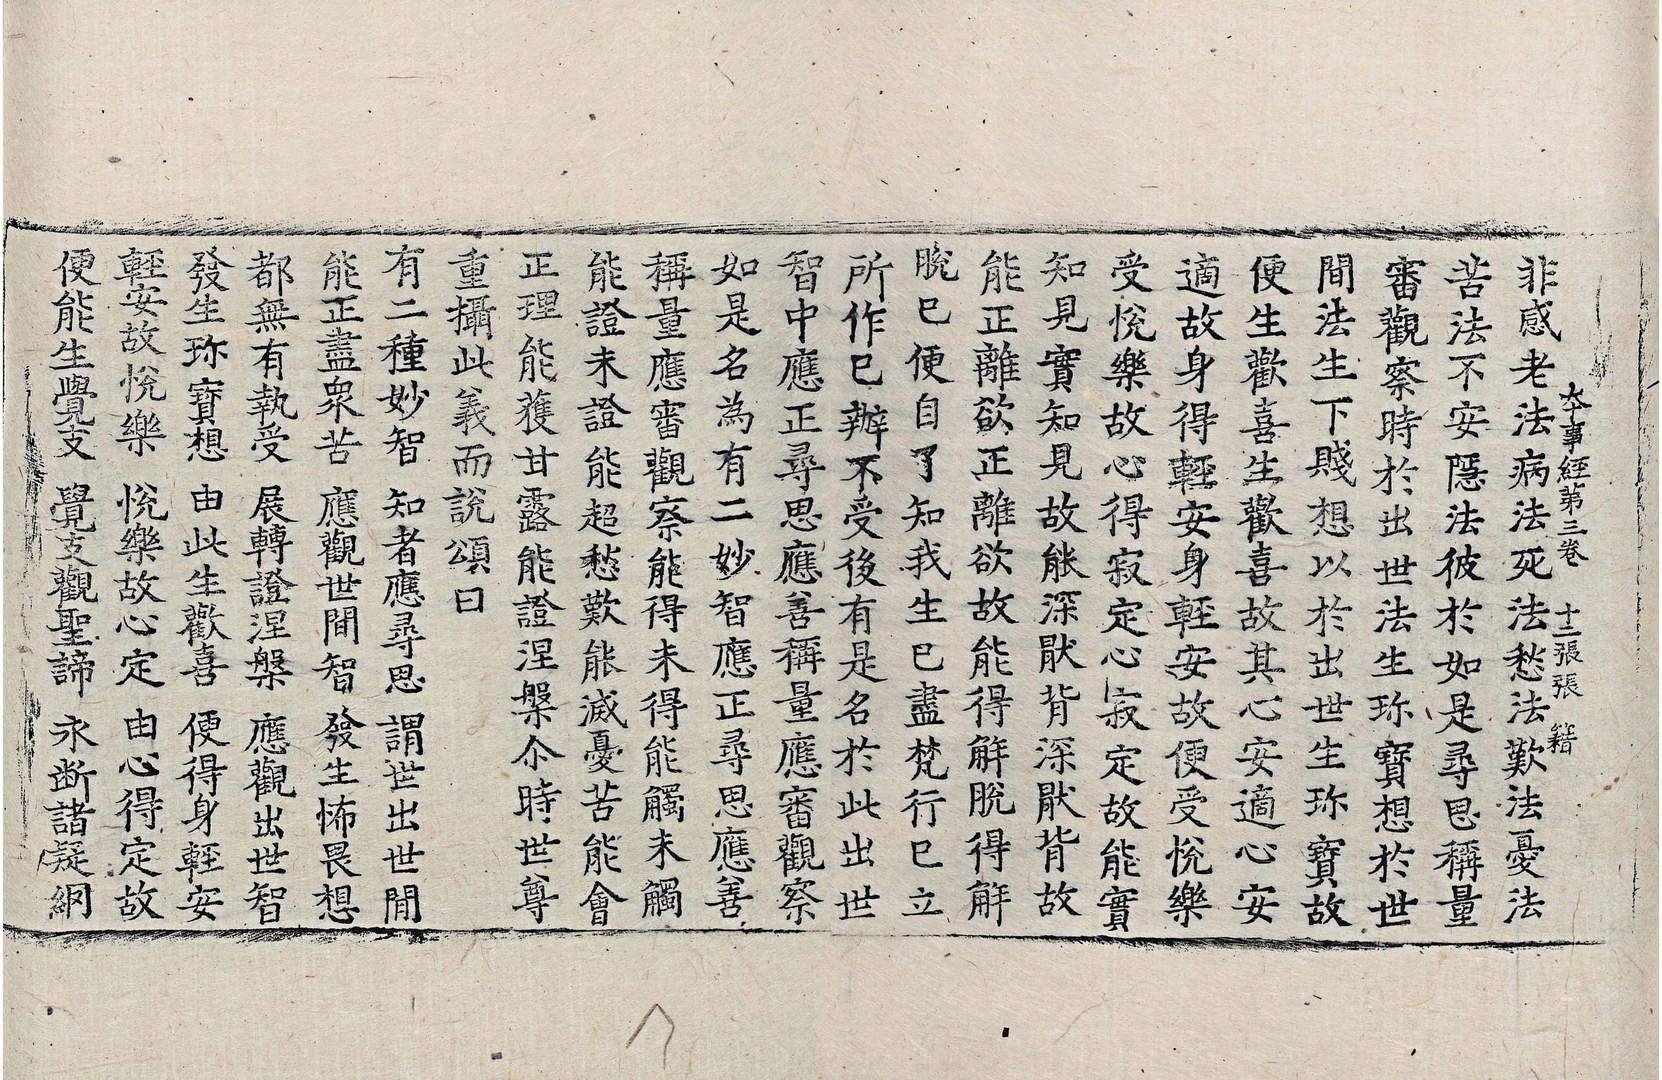 本事經第三卷 十二張張 籍
非惑老法病法死法愁法歎法憂法
苦法不安隱法彼於如是尋思稱量
審觀察時於出世法生珎寶想於世
間法生下賤想以於出世生珎寶故
便生歡喜生歡喜故其心安適心安
適故身得輕安身輕安故便受悅樂
受悅樂故心得寂定心寂定故能實
知見實知見故能深猒背深猒背故
能正離欲正離欲故能得解脫得解
脫已便自了知我生已盡梵行已立
所作已辦不受後有是名於此出世
智中應正尋思應善稱量應審觀察
如是名為有二妙智應正尋思應善
稱量應審觀察能得未得能觸未觸
能證未證能超愁歎能滅憂苦能會
正理能獲甘露能證涅槃尒時世尊
重攝此義而說頌曰
有二種妙智 知者應尋思 謂世出世間
能正盡衆苦 應觀世間智 發生怖畏想
都無有執受 展轉證涅槃 應觀出世智
發生珎寶想 由此生歡喜 便得身輕安
輕安故悅樂 悅樂故心定 由心得定故
便能生覺支 覺支觀聖諦 永断諸疑網